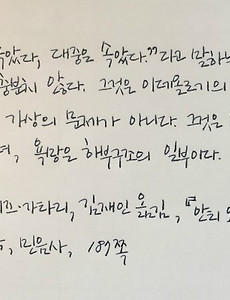 속았다, 대중은 속았다."라고 말하는
충분치 않다. 그것은 이데올로기의
가상의 문제가 아니다. 그것은
며, 욕망은 하부구조의 일부이다.
즈·가타리, 김재인 옮김, 『안티 오
민음사, 189쪽